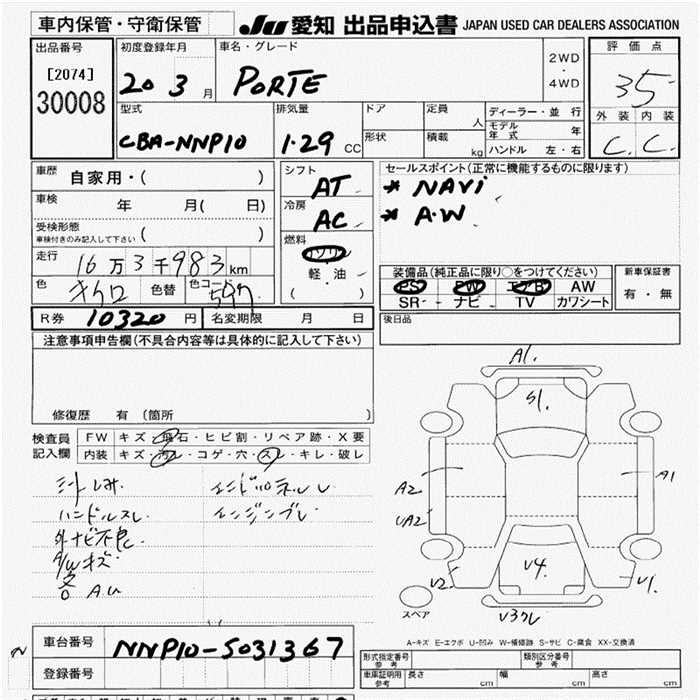 車内保管・守衛保管
JU 愛知 出品申込書 JAPAN USED CAR DEALERS ASSOCIATION
出品番号
[2074]
30008
初度登録年月
20 3 月
車名・グレード
PORTE
2WD
・
4WD
評価点
3.5
外装 内装
C. C.
型式
CBA-NNP10
排気量
1.29 CC
ドア
形状
定員 人
積載 kg
ディーラー・並行
モデル年式 年
ハンドル 左・右
車歴 自家用・( )
車検 年 月( 日)
受検形態
車検付きのみ記入して下さい ( )
走行 16万3千983 km
色 色替 色コード
シフト AT
冷房 AC
燃料 ガソリン
軽・油
( )
セールスポイント(正常に機能するものに限ります)
* NAVi
* A・W
装備品(純正品に限り○をつけてください)
PS PW エアB AW
SR ナビ TV カワシート
新車保証書
有・無
後日品
R券 10320 円 名変期限 月 日
注意事項申告欄(不具合内容等は具体的に記入して下さい)
修復歴 有 (箇所 )
検査員記入欄
FW キズ・飛石・ヒビ割・リペア跡・X要
内装 キズ・汚レ・コゲ・穴・スレ・キレ・破レ
シートしみ
ハンドルスレ
外ナビ不良
A/Wキズ
エンジンブレ
A1.
S1.
A2
UA2
A1
V2
V4.
V1.
スペア
A-キズ E-エクボ U-凹み W-補修跡 S-サビ C-腐食 XX-交換済
車台番号 NNP10-5031367
登録番号
形式指定番号
参考
類別区分番号
参考
車庫証明用
参考
長さ cm 幅 cm 高さ cm